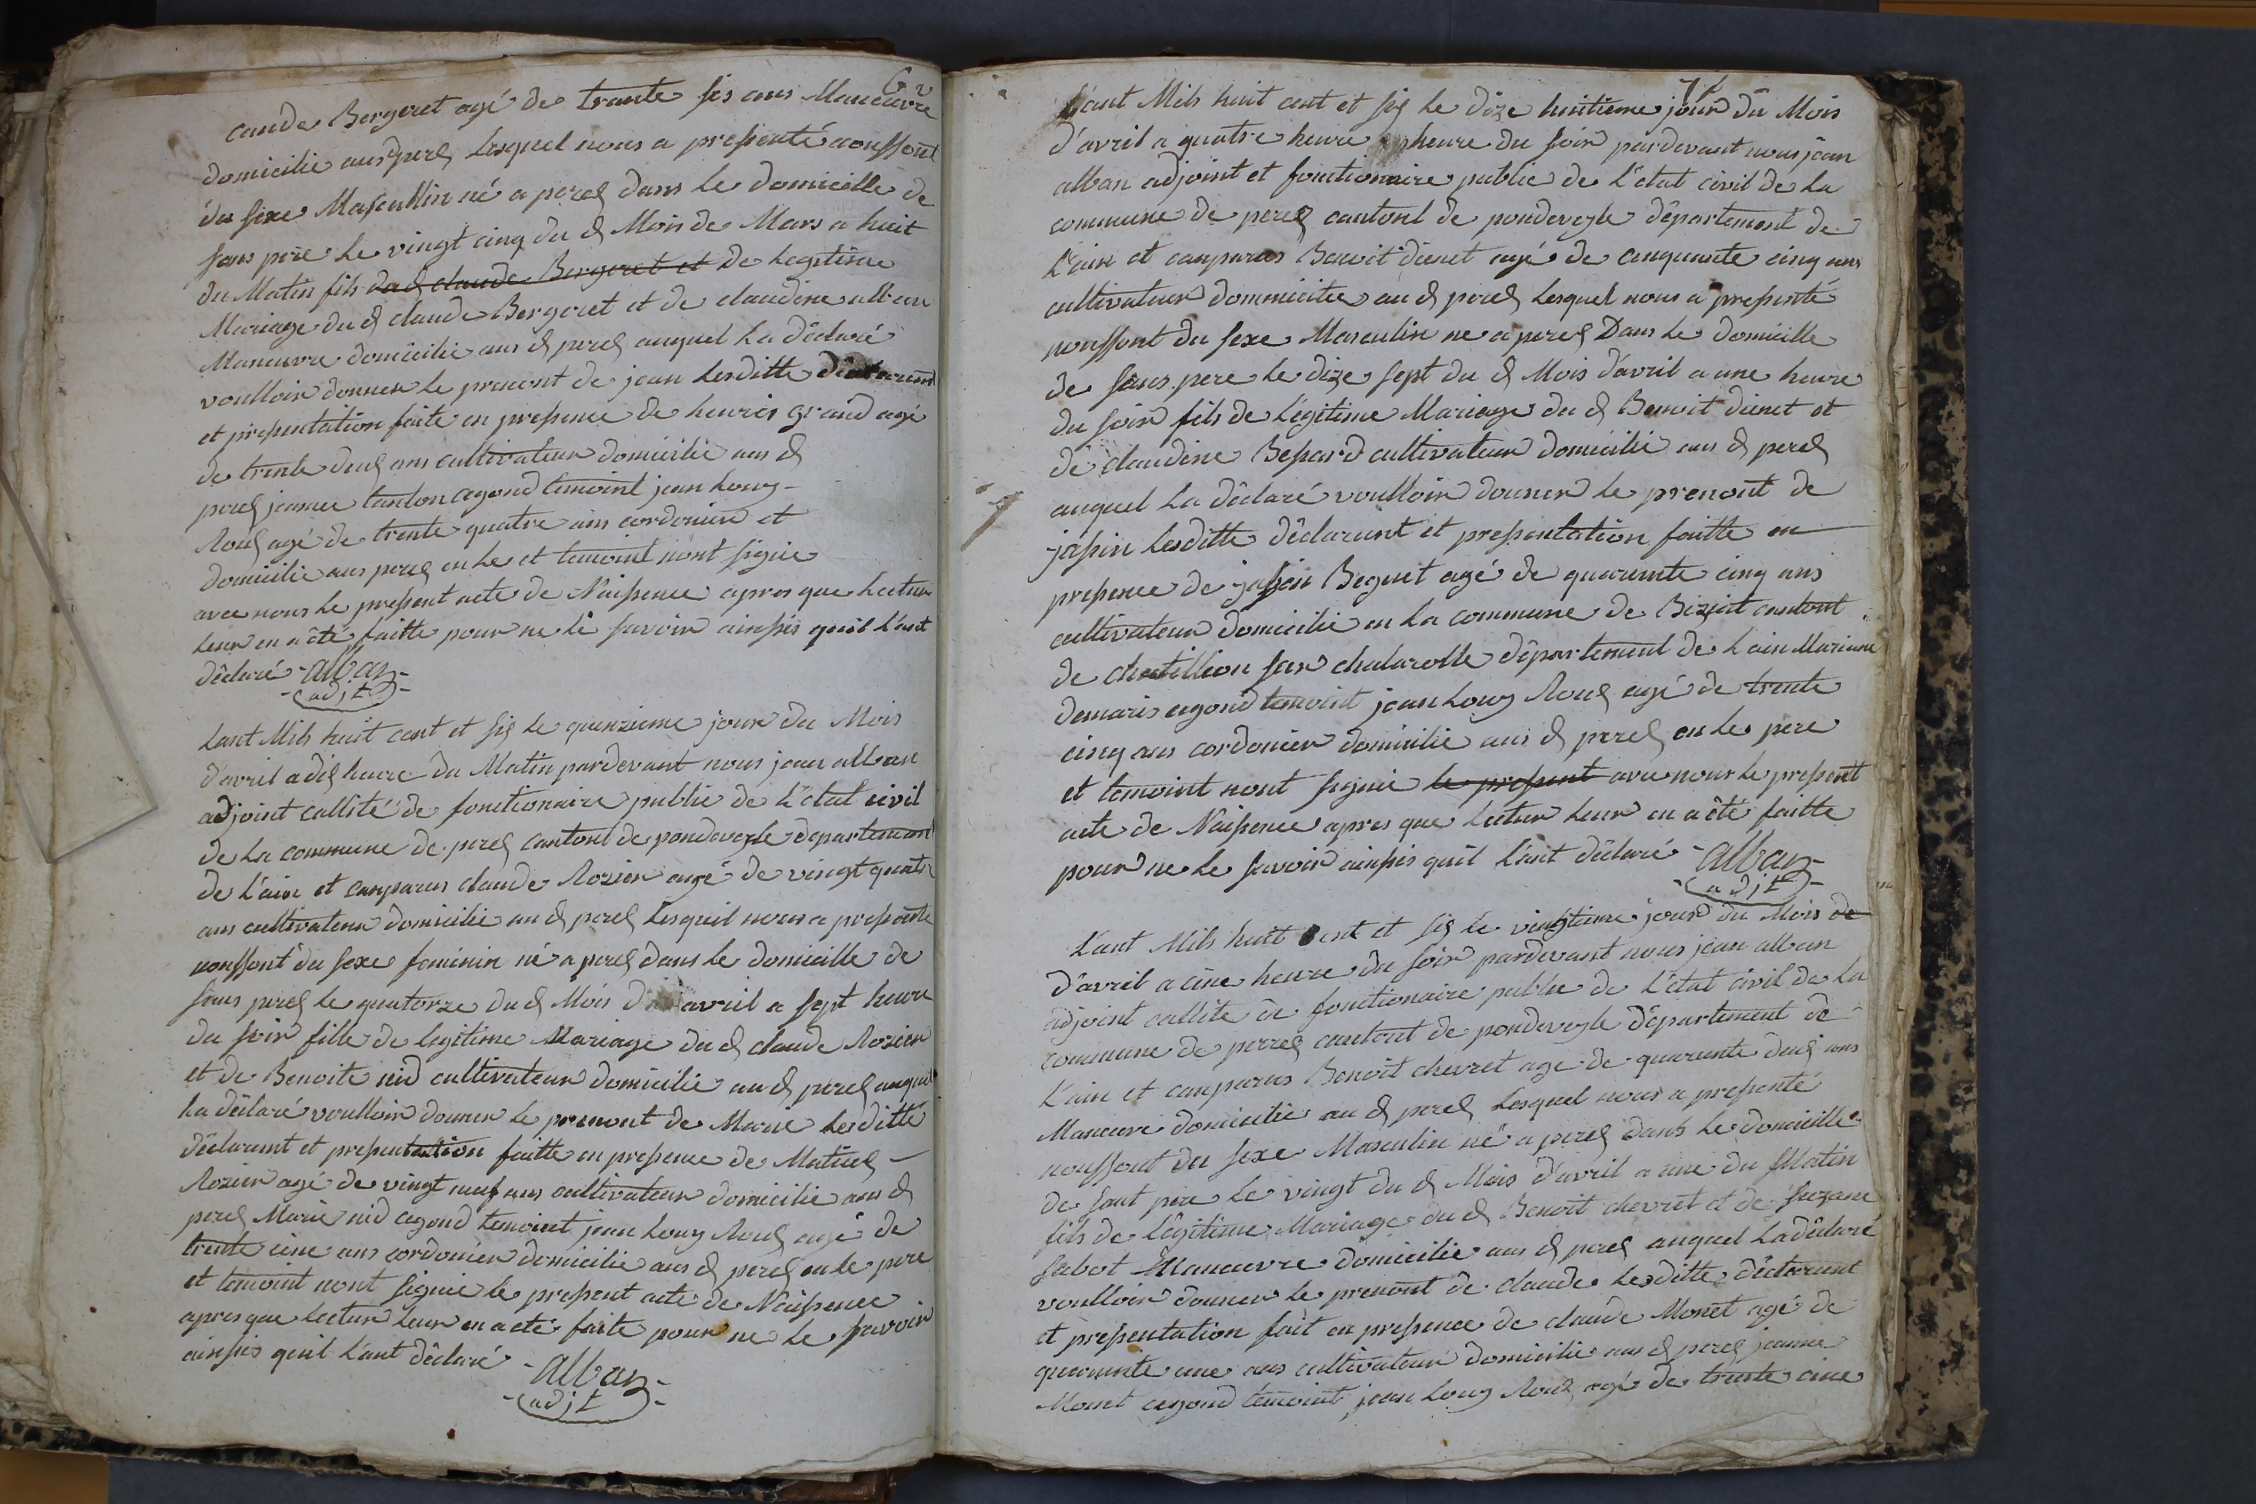 6 v
caude Bergeret agé de trante sis ans Maneuvre
domicilie aus perex Lesquel nous a presenté nonssont
du sexe Masculin né a perex dans le domicille de
sons père le vingt cinq du d Mois de Mars a huit
du Matin fils du d claude Bergeret et De Legitime
Mariage du d claude Bergeret et de claudine alban
Maneuvre domicilie aus d perex auquel La déclaré
voulloir donner le prenont de jean Lesditte déclarant
et presentation faite en presence de heuris grand agé
de trente deux ans cultivateur domicilie aus d
perex jeanne tanton cegond temoint jean Louy
Roux agé de trente quatre ans cordonier et
domicilie aus perex en le et temoint nont signie
avec nous le present acte de Naisence apres que Lectur
Leur en a été faitte pour ne le savoir ainsis quil L'ant
déclaré - alban -
- adjt -
Lant Mils huit cent et six le quinzieme jour du Mois
d'avril a dix heure du Matin pardevant nous jean alban
adjoint callité de fonctionaire public de L'état civil
de La commune de perex cantont de pondeveyle departement
de L'ain et canparus claude Rozier agé de vingt quatre
ans cultivateur domicilie au d perex Lesquel nous a presenté
nonssont du sexe feminin né a perex dans le domicille de
sons perex le quatorze du d Mois d avril a sept heure
du soir fille de legitime Mariage du d claude Rozier
et de Benoite nid cultivateur domicilie au d perex auquel
La déclaré voulloir donner le prenont de Marie Lesditte
déclarant et presentation faitte en presence de Matieu
Rozier agé de vingt neuf ans cultivateur domicilie aus d
perex Marie nid cegond temoint jean Louy Roux agé de
trente cinc ans cordonier domicilie aus d perex en le pere
et temoint nont signie le present acte de Naisence
apres que Lectur Leur en a eté faite pour ne le savoir
ainsis quil L'ant déclaré - alban -
- adjt -
7 r
L'ant Mils huit cent et six le dixe huitieme jour du Mois
d'avril a quatre heure heure du soir pardevant nous jean
alban adjoint et fonctionaire public de L'état civil de la
commune de perex cantont de pondeveyle département de
L'ain et canparus Benoit dunet agé de cinquante cinq ans
cultivateur dommicilie au d perex Lesquel nous a presenté
nonssont du sexe Masculin ne a perex Dans le domicille
de sons pere le dixe sept du d Mois d'avril a une heure
du soir fils de Légitime Mariage du d Benoit dunet et
de claudine Besard cultivateur domicilie aus d perex
auquel La déclaré voulloir donner le prenont de
jasin Lesditte déclarant et presentation faitte en
presence de jasin Beguet agé de quarante cinq ans
cultivateur domicilie en La commune de Biziat cantont
de chatillion sur chalarolle département de Lain Mariane
demaris cegond temoint jean Louy Roux agé de trente
cinq ans cordonier domicilie aus d perex en le pere
et temoint nont signie le present avec nous le present
acte de Naisence apres que Lectur Leur en a été faitte
pour ne le savoir ainsis quil L'ant déclaré - alban -
- adjt -
L'ant Mils huit cent et six le vingtieme jour du Mois de
d'avril a cinc heure du soir pardevant nous jean alban
adjoint callite de fonctionaire public de L'état civil de La
commune de perrex cantont de pondeveyle département de
L'ain et canparus Benoit chevret age de quarante deux ans
Maneuvre domicilie au d perex Lesquel nous a presenté
nonssont du sexe Masculin né a perex dans le domicille
de sont père le vingt du d Mois d'avril a une du Matin
fils de Légitime Mariage du d Benoit chevret et de suzane
sabot Maneuvre domicilie aus d perex auquel La déclaré
voulloir donner le prenont de claude Lesditte déclarant
et presentation fait en presence de claude Monet agé de
quarante une ans cultivateur domicilie aus d perex jeanne
Monet cegond temoint jean Louy Roux agé de trente cinc